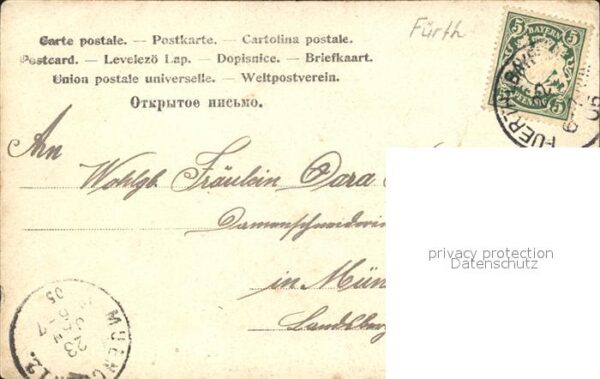 Fürth
Carte postale. — Postkarte. — Cartolina postale.
Postcard. — Levelező Lap. — Dopisnice. — Briefkaart.
Union postale universelle. — Weltpostverein.
Открытое письмо.
BAYERN
5 5
PFENNIG
5 5
FUERTH
An
Wohlgb. Fräulein Dora
Damenschneiderin
in Mün
Landsber
privacy protection
Datenschutz
MUENC
12.
23
6-7
05